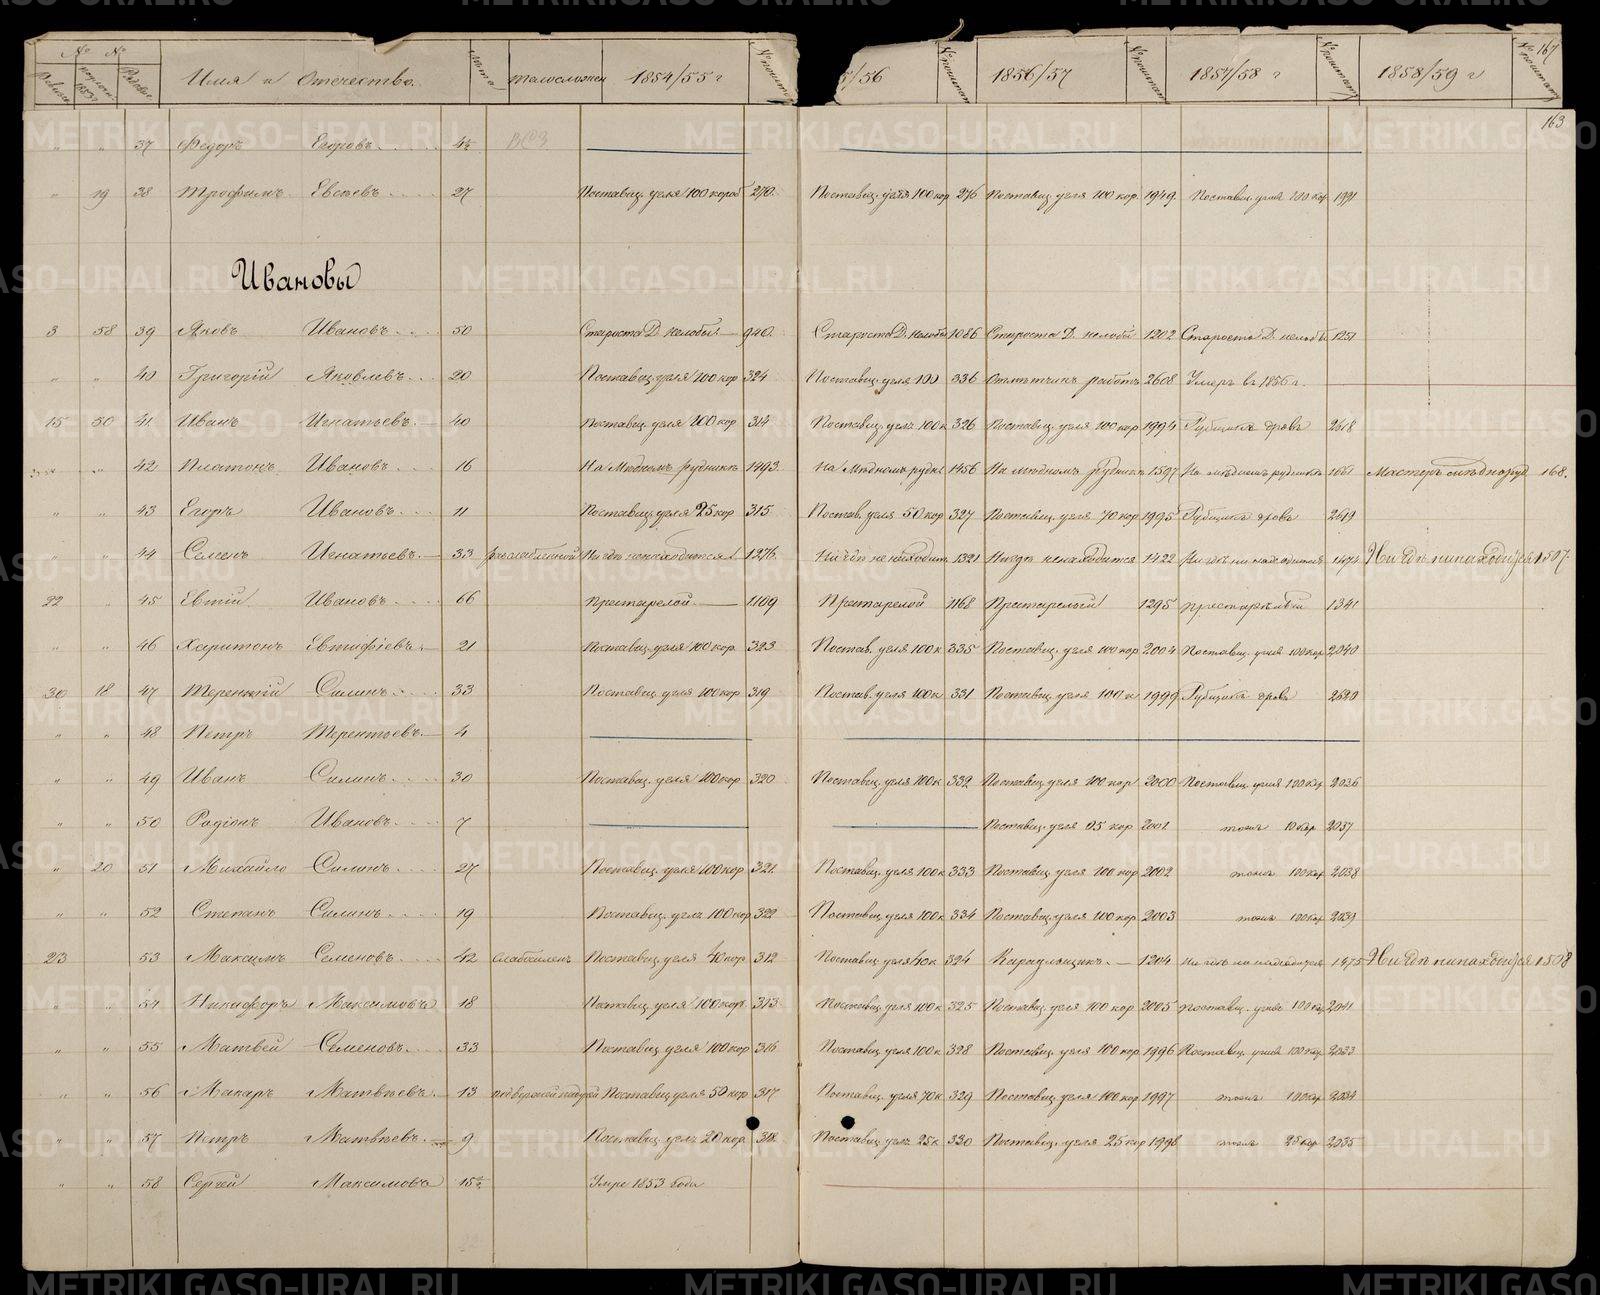 № №
Имя и Отечество.
лета
телосложен
1854/55 г
№ по штату
5/56
№ по штату
1856/57
№ по штату
1857/58 г
№ по штату
1858/59 г
№ по штату
167
163
" " 37 Федоръ Егоровъ 4½
" 19 38 Трофимъ Евсеевъ 27 Поставщ. угля 100 короб 270. Поставщ. угля 100 кор 276 Поставщ. угля 100 кор. 1949. Поставщ. угля 100 кор. 1991
Ивановы
3 58 39 Яковъ Ивановъ 50 Староста Д. 940. Староста Д. 1086 Староста Д. 1202 Староста Д. 1251
" " 40 Григорій Яковлевъ 20 Поставщ. угля 100 кор 324 Поставщ. угля 100 336 работъ 2608 Умеръ въ 1856 г.
15 50 41 Иванъ Игнатьевъ 40 Поставщ. угля 100 кор 314 Поставщ. угля 100 к 326 Поставщ. угля 100 кор 1994 Рубщикъ дровъ 2618
42 Платонъ Ивановъ 16 На Медномъ рудникъ 1493. На Медномъ рудн. 1456 На медномъ рудникъ 1597 На медномъ рудникъ 1661 Мастеръ 168.
" " 43 Егоръ Ивановъ 11 Поставщ. угля 25 кор 315 Постав. угля 50 кор 327 Поставщ. угля 70 кор 1995 Рубщикъ дровъ 2619
" " 44 Семенъ Игнатьевъ 33 разслабленный Нигдѣ ненаходится 1276. Нигдѣ не находит. 1321 Нигдѣ ненаходится 1422 Нигдѣ не находится 1474 Нигдѣ ненаходится 1507
22 " 45 Евтій Ивановъ 66 Престарелой 1109 Престарелой 1168 Престарелый 1295 престарѣлый 1341
" " 46 Харитонъ Евтифіевъ 21 Поставщ. угля 100 кор. 323 Постав. угля 100 к 335 Поставщ. угля 100 кор 2004 Поставщ. угля 100 кор 2040
30 18 47 Терентій Силинъ 33 Поставщ. угля 100 кор 319 Постав. угля 100 к 331 Поставщ. угля 100 к 1999 Рубщикъ дровъ 2620
" " 48 Петръ Терентьевъ 4
" " 49 Иванъ Силинъ 30 Поставщ. угля 100 кор 320 Поставщ. угля 100 к 332 Поставщ. угля 100 кор 2000 Поставщ. угля 100 кор 2036
" " 50 Радіонъ Ивановъ 7 Поставщ. угля 05 кор 2001 тожъ 10 кор 2037
" 20 51 Михайло Силинъ 27 Поставщ. угля 100 кор 321. Поставщ. угля 100 к 333 Поставщ. угля 100 кор 2002 тожъ 100 кор 2038
" " 52 Степанъ Силинъ 19 Поставщ. угля 100 кор 322 Поставщ. угля 100 к 334 Поставщ. угля 100 кор 2003 тожъ 100 кор 2039
23 53 Максимъ Семеновъ 42 слабосиленъ Поставщ угля 40 кор 312 Поставщ угля 40 к 324 Караульщикъ 1204 Нигдѣ не находится 1475 Нигдѣ ненаходится 1508
" " 54 Никифоръ Максимовъ 18 Поставщ. угля 100 кор 313 Поставщ. угля 100 к 325 Поставщ. угля 100 кор 2005 Поставщ. угля 100 кор 2041
" " 55 Матвей Семеновъ 33 Поставщ. угля 100 кор 316 Поставщ. угля 100 к 328 Поставщ. угля 100 кор 1996 Поставщ. угля 100 кор 2033
" " 56 Макаръ Матвѣевъ 13 Поставщ угля 50 кор 317 Поставщ. угля 70 к 329 Поставщ. угля 100 кор 1997 тожъ 100 кор 2034
" " 57 Петръ Матвѣевъ 9 Поставщ. угля 20 кор. 318. Поставщ угля 25 к 330 Поставщ. угля 25 кор 1998 тожъ 25 кор 2035
" " 58 Сергей Максимовъ 15½ Умре 1853 года
METRIKI.GASO-URAL.RU